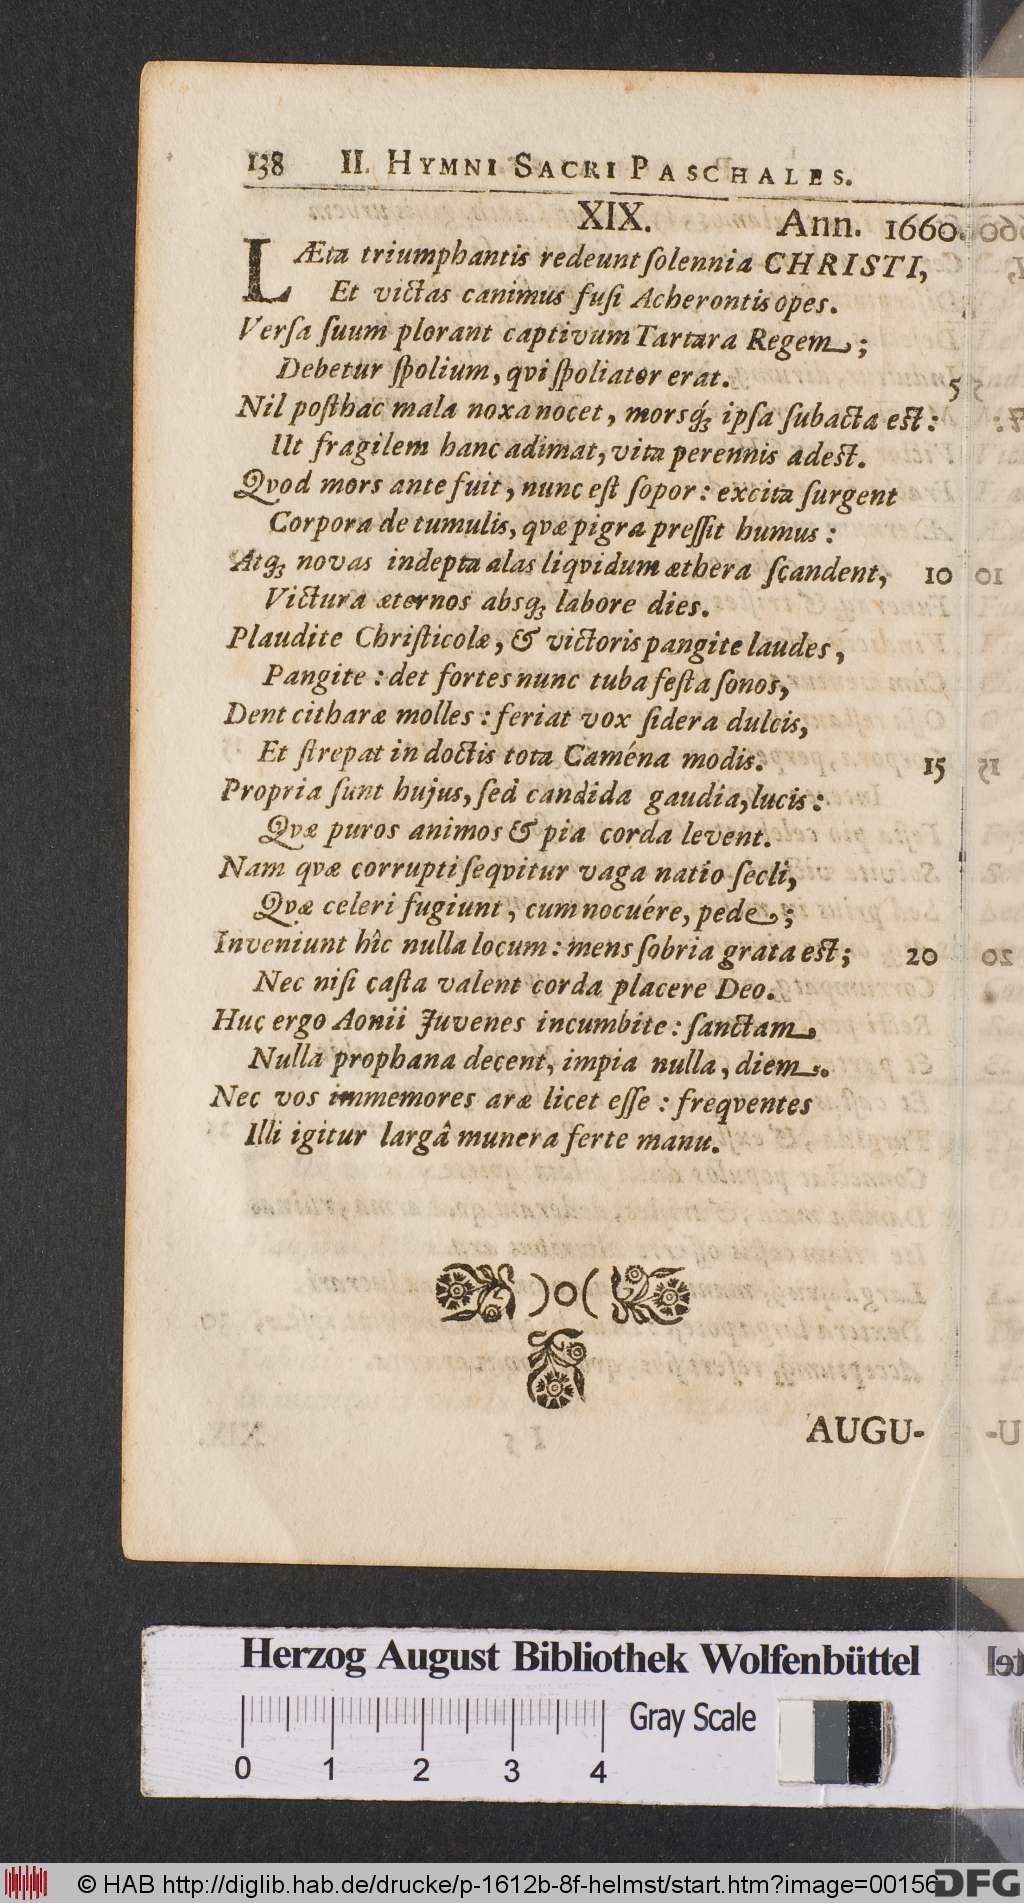 138 II. HYMNI SACRI PASCHALES.
XIX. Ann. 1660.
LÆta triumphantis redeunt ſolennia CHRISTI,
Et victas canimus fuſi Acherontis opes.
Verſa ſuum plorant captivum Tartara Regem;
Debetur ſpolium, qvi ſpoliator erat.
5
Nil poſthac mala noxa nocet, morsq́ꝫ ipſa ſubacta est:
Ut fragilem hanc adimat, vita perennis adest.
Qvod mors ante fuit, nunc eſt ſopor: excita ſurgent
Corpora de tumulis, qvæ pigra preſſit humus:
Atqꝫ novas indepta alas liqvidum æthera ſcandent, 10
Victura æternos absqꝫ labore dies.
Plaudite Chriſticolæ, & victoris pangite laudes,
Pangite: det fortes nunc tuba feſta ſonos,
Dent citharæ molles: feriat vox ſidera dulcis,
Et ſtrepat in doctis tota Caména modis. 15
Propria ſunt hujus, ſed candida gaudia, lucis:
Qvæ puros animos & pia corda levent.
Nam qvæ corrupti ſeqvitur vaga natio ſecli,
Qvæ celeri fugiunt, cum nocuére, pede;
Inveniunt hîc nulla locum: mens ſobria grata est; 20
Nec niſi caſta valent corda placere Deo.
Huc ergo Aonii Juvenes incumbite: ſanctam
Nulla prophana decent, impia nulla, diem.
Nec vos immemores aræ licet eſſe: freqventes
Illi igitur largâ munera ferte manu.
)o(
AUGU-
Herzog August Bibliothek Wolfenbüttel
Gray Scale
0 1 2 3 4
© HAB http://diglib.hab.de/drucke/p-1612b-8f-helmst/start.htm?image=00156
DFG